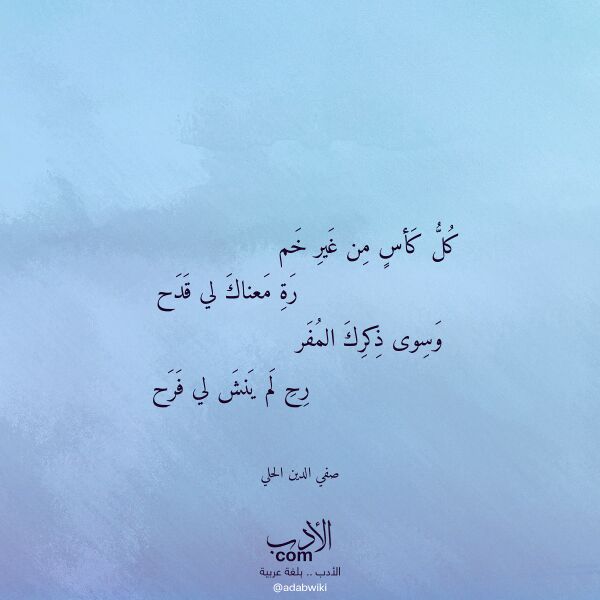 كُلُّ كَأسٍ مِن غَيرِ خَم
رَةِ مَعناكَ لي قَدَح
وَسِوى ذِكرِكَ المُفَر
رِحِ لَم يَنشَ لي فَرَح
صفي الدين الحلي
الأدب
com
الأدب .. بلغة عربية
@adabwiki